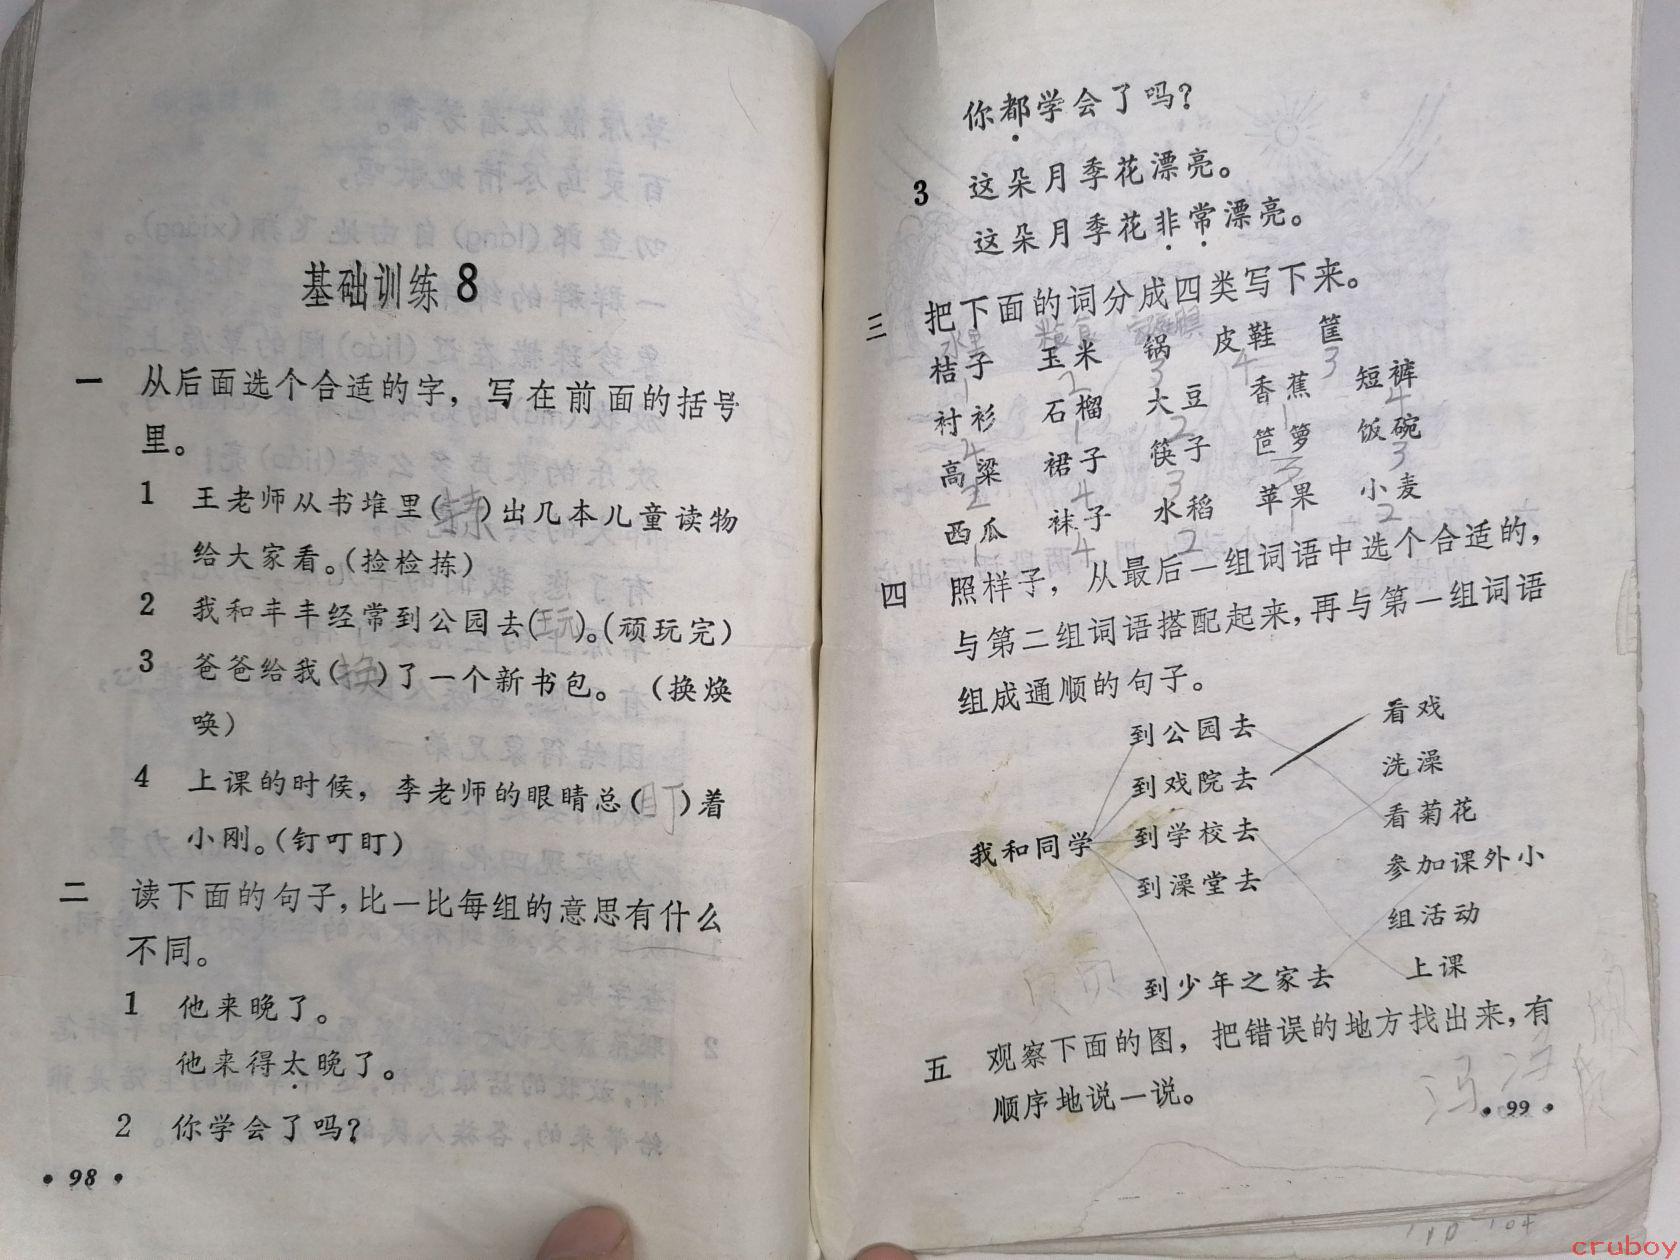 基础训练 8
一 从后面选个合适的字，写在前面的括号
里。
1 王老师从书堆里(拣)出几本儿童读物
给大家看。(捡检拣)
2 我和丰丰经常到公园去(玩)。(顽玩完)
3 爸爸给我(换)了一个新书包。 (换焕
唤)
4 上课的时候，李老师的眼睛总(盯)着
小刚。(钉叮盯)
二 读下面的句子，比一比每组的意思有什么
不同。
1 他来晚了。
他来得太晚了。
2 你学会了吗？
• 98 •
你都学会了吗？
3 这朵月季花漂亮。
这朵月季花非常漂亮。
三 把下面的词分成四类写下来。
粮食
桔子 玉米 锅 皮鞋 筐
1 2 3 4 3
衬衫 石榴 大豆 香蕉 短裤
4 1 2 1 4
高粱 裙子 筷子 笸箩 饭碗
2 4 3 3 3
西瓜 袜子 水稻 苹果 小麦
1 4 2 1 2
四 照样子，从最后一组词语中选个合适的，
与第二组词语搭配起来，再与第一组词语
组成通顺的句子。
我和同学
到公园去
到戏院去
到学校去
到澡堂去
到少年之家去
看戏
洗澡
看菊花
参加课外小
组活动
上课
五 观察下面的图，把错误的地方找出来，有
顺序地说一说。
• 99 •
cruboy